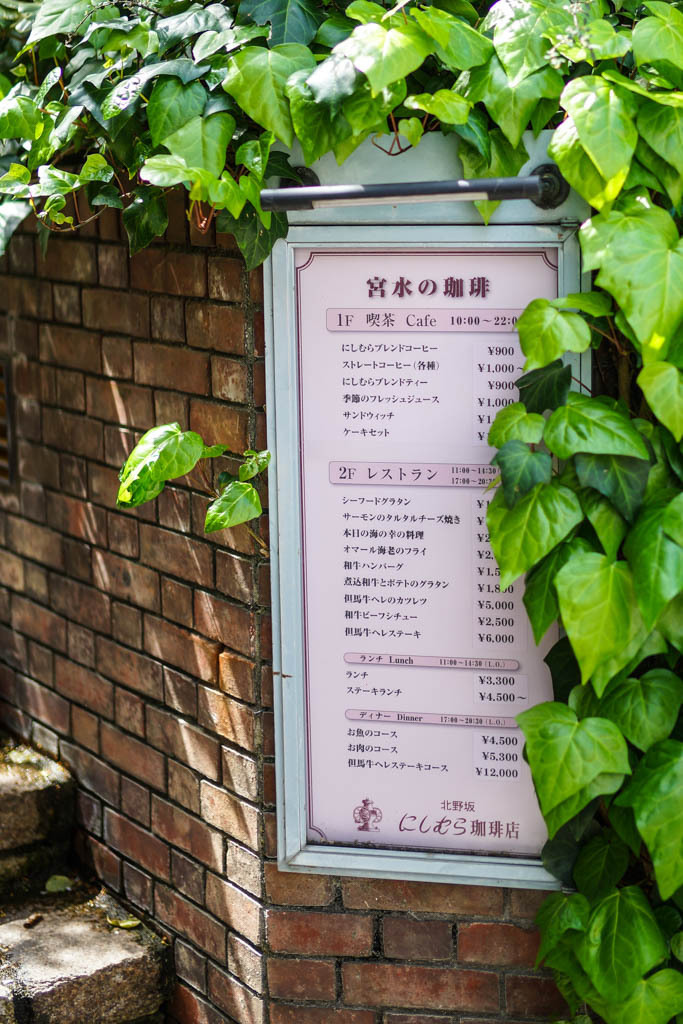 宮水の珈琲
1F 喫茶 Cafe 10:00～22:0
にしむらブレンドコーヒー ¥900
ストレートコーヒー(各種) ¥1,000～
にしむらブレンドティー ¥900
季節のフレッシュジュース ¥1,000
サンドウィッチ ¥1
ケーキセット ¥1
2F レストラン 11:00～14:30
17:00～20:30
シーフードグラタン
サーモンのタルタルチーズ焼き
本日の海の幸の料理
オマール海老のフライ
和牛ハンバーグ
煮込和牛とポテトのグラタン ¥1,850
但馬牛ヘレのカツレツ ¥5,000
和牛ビーフシチュー ¥2,500
但馬牛ヘレステーキ ¥6,000
ランチ Lunch 11:00～14:30(L.O.)
ランチ ¥3,300
ステーキランチ ¥4,500～
ディナー Dinner 17:00～20:30(L.O.)
お魚のコース ¥4,500
お肉のコース ¥5,300
但馬牛ヘレステーキコース ¥12,000
北野坂
にしむら珈琲店